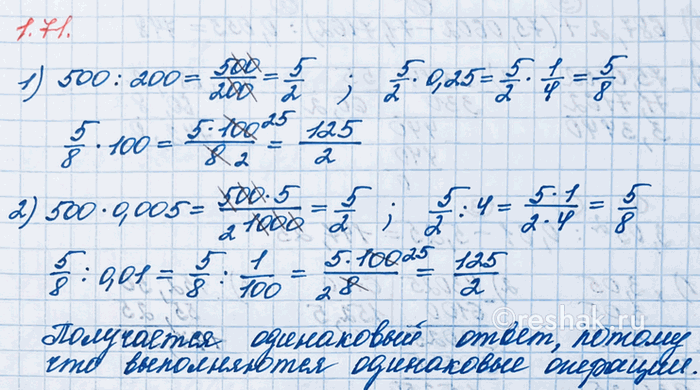 1.71.
1) 500 : 200 = 500/200 = 5/2 ; 5/2 · 0,25 = 5/2 · 1/4 = 5/8
5/8 · 100 = 5 · 100 25/8 2 = 125/2
2) 500 · 0,005 = 500 · 5/2 1000 = 5/2 ; 5/2 : 4 = 5 · 1/2 · 4 = 5/8
5/8 : 0,01 = 5/8 : 1/100 = 5 · 100 25/2 8 = 125/2
©reshak.ru
Получается одинаковый ответ, потому
что выполняются одинаковые операции.